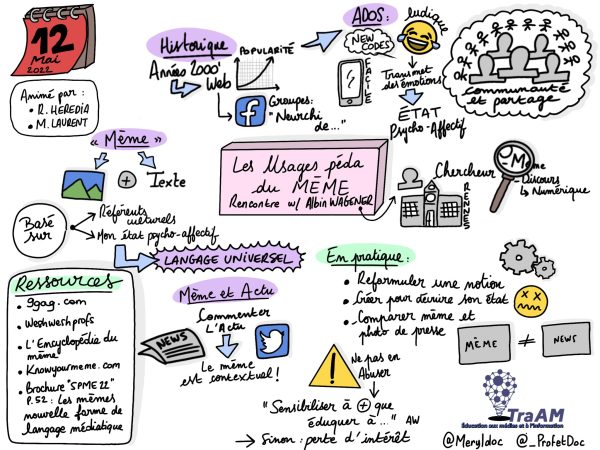 12
Mai
2022
Animé par :
• R. HEREDIA
• M. LAURENT
Historique
Années 2000'
Web
POPULARITÉ
Groupes:
"Neurchi
de..."
ADOS:
NEW
CODES
FACILE
ludique
Transmet
des émotions
ÉTAT
Psycho-Affectif
Communauté
et partage
« Mème »
+ Texte
Basé
sur
Référents
culturels
Mon état psycho-affectif
LANGAGE UNIVERSEL
Les Usages péda
du MÈME
Rencontre w/ Albin WAGENER
Chercheur
RENNES
Mème
- Discours
↳ Numérique
Ressources
• 9gag.com
• Weshweshprofs
• L'Encyclopédia du
mème
• Knowyourmeme.com
• Brochure "SPME 22"
P.52 : Les mèmes
nouvelle forme de
langage médiatique
Mème et Actu
Commenter
L'Actu
NEWS
Le mème
est contextuel !
En pratique :
• Reformuler une notion
• Créer pour décrire son état
• Comparer mème et
photo de presse
MÈME ≠ NEWS
Ne pas en
Abuser
"Sensibiliser à + que
éduquer à..." AW
→ Sinon : perte d'intérêt
TraAM
Éducation aux médias et à l'information
@Meryldoc @_ProfetDoc